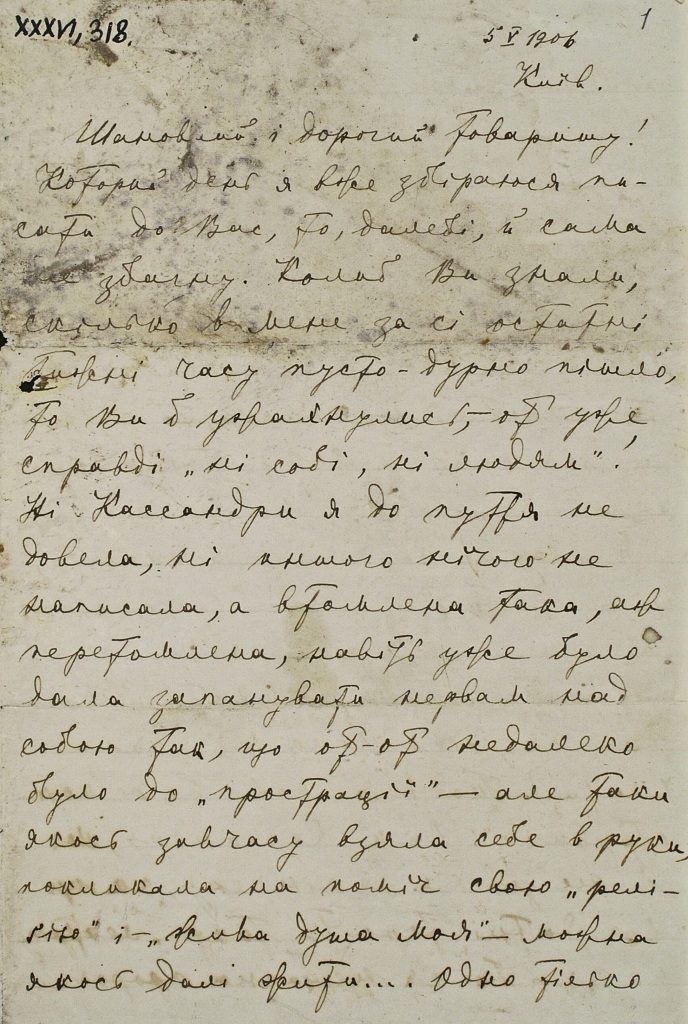 XXXVI, 318.
1
5 V 1906
Київ.
Шановний і дорогий товаришу!
Которий день я вже збіраюся пи-
сати до Вас, то, далебі, й сама
не збагну. Колиб Ви знали,
скілько в мене за сі остатні
тижні часу пусто-дурно пішло,
то Ви б ужаxнулись, – от уже
справді „ні собі, ні людям"!
Ні Кассандри я до пуття не
довела, ні иншого нічого не
написала, а втомлена така, аж
перетомлена, навіть уже було
дала запанувати нервам над
собою так, що от-от недалеко
було до „прострації" – але таки
якось завчасу взяла себе в руки,
покликала на поміч свою „релі-
гію" і – „жива душа моя" – можна
якось далі жити.... Одно тілько